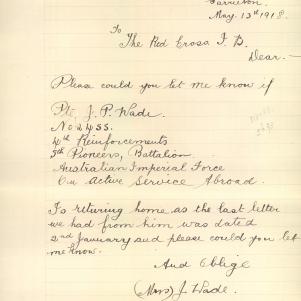 May. 13th 1918.
To
The Red Cross I. B.
Dear. —
Please could you let me know if
Pte. J. P. Wade.
No 2455.
4th Reinforcements
5th Pioneers, Battalion
Australian Imperial Force
On Active Service Abroad.
Is returing home as the last letter
we had from him was dated
2nd January and please could you let
me know.
And Oblige
(Mrs) J. Wade.